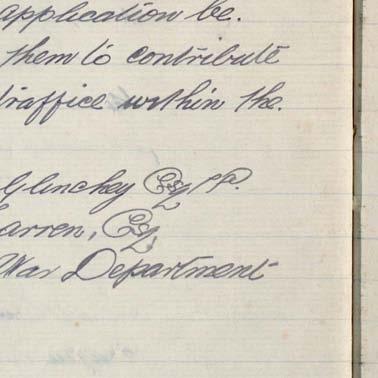 application be.
them to contribute
traffice within the.
Glinchey Esq
arren, Esq
War Department